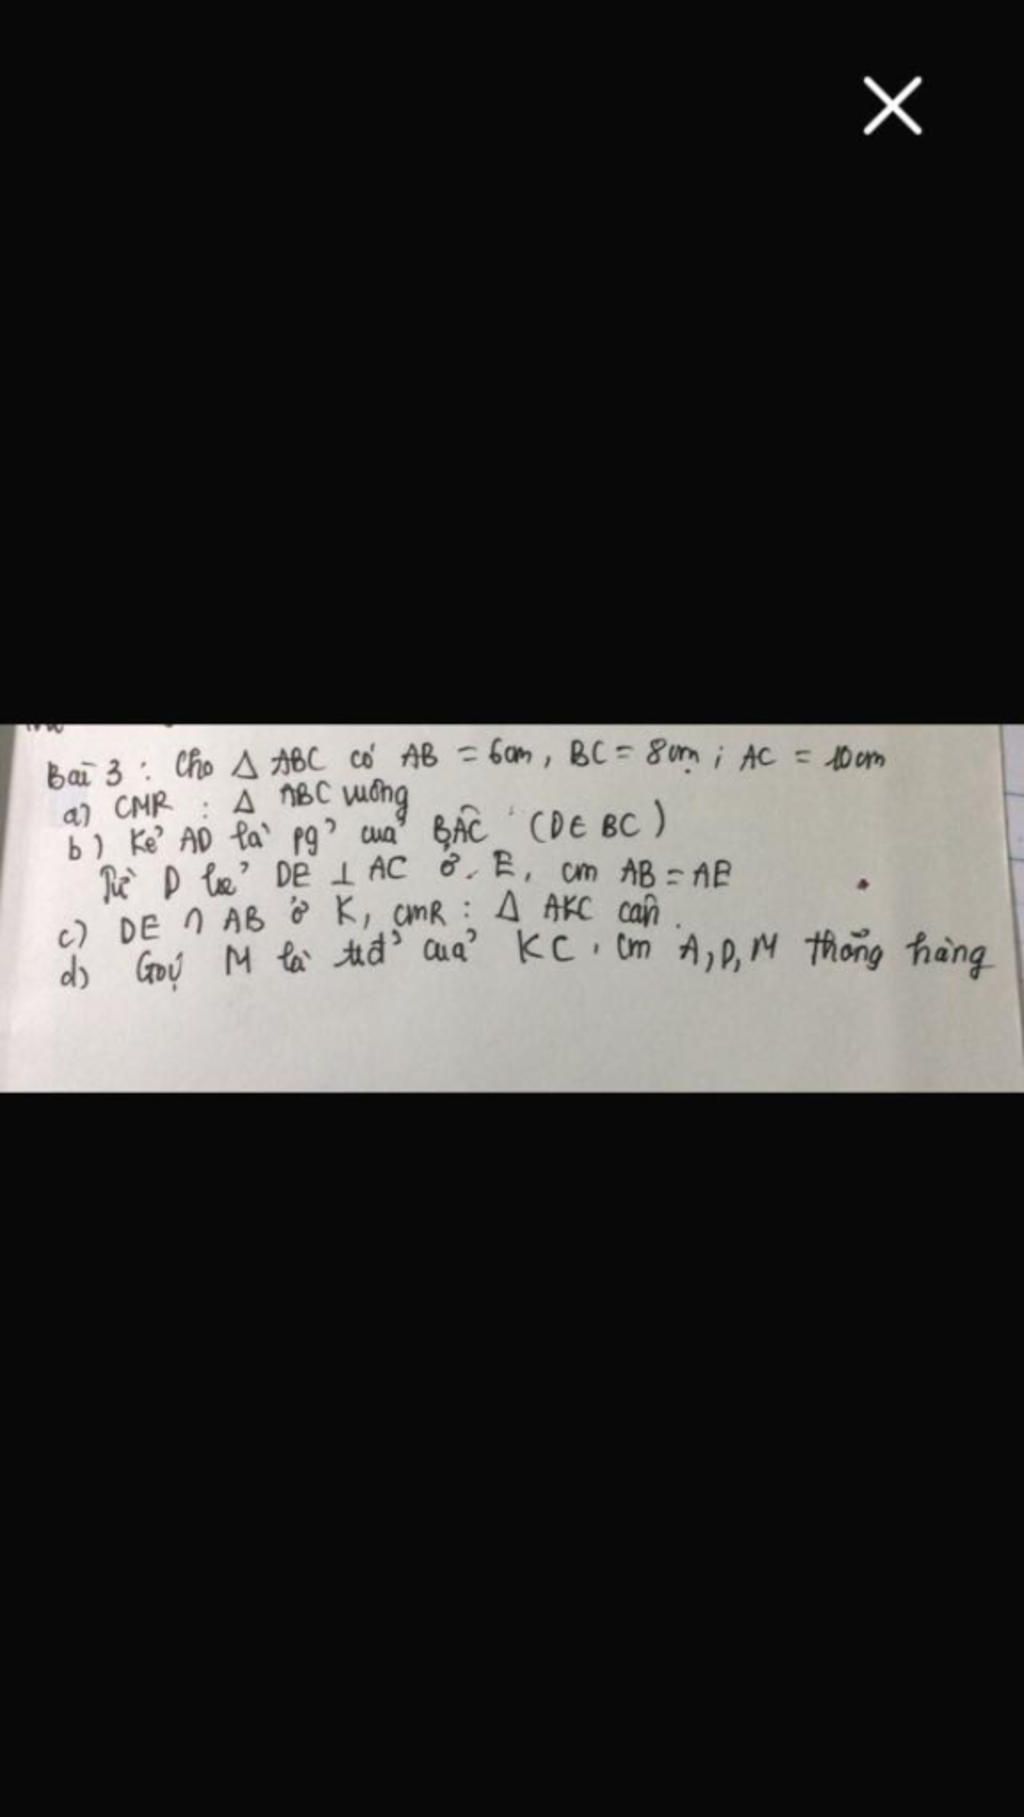 Bài 3 : Cho Δ ABC có AB = 6cm, BC = 8cm ; AC = 10cm
a) CMR : Δ ABC vuông
b) Kẻ AD là pg̉ của BÂC (D ∈ BC)
Từ D kẻ DE ⊥ AC ở E, cm AB = AE
c) DE ∩ AB ở K, CMR : Δ AKC cân.
d) Gọi M là tđ̉ của KC, cm A, D, M thẳng hàng